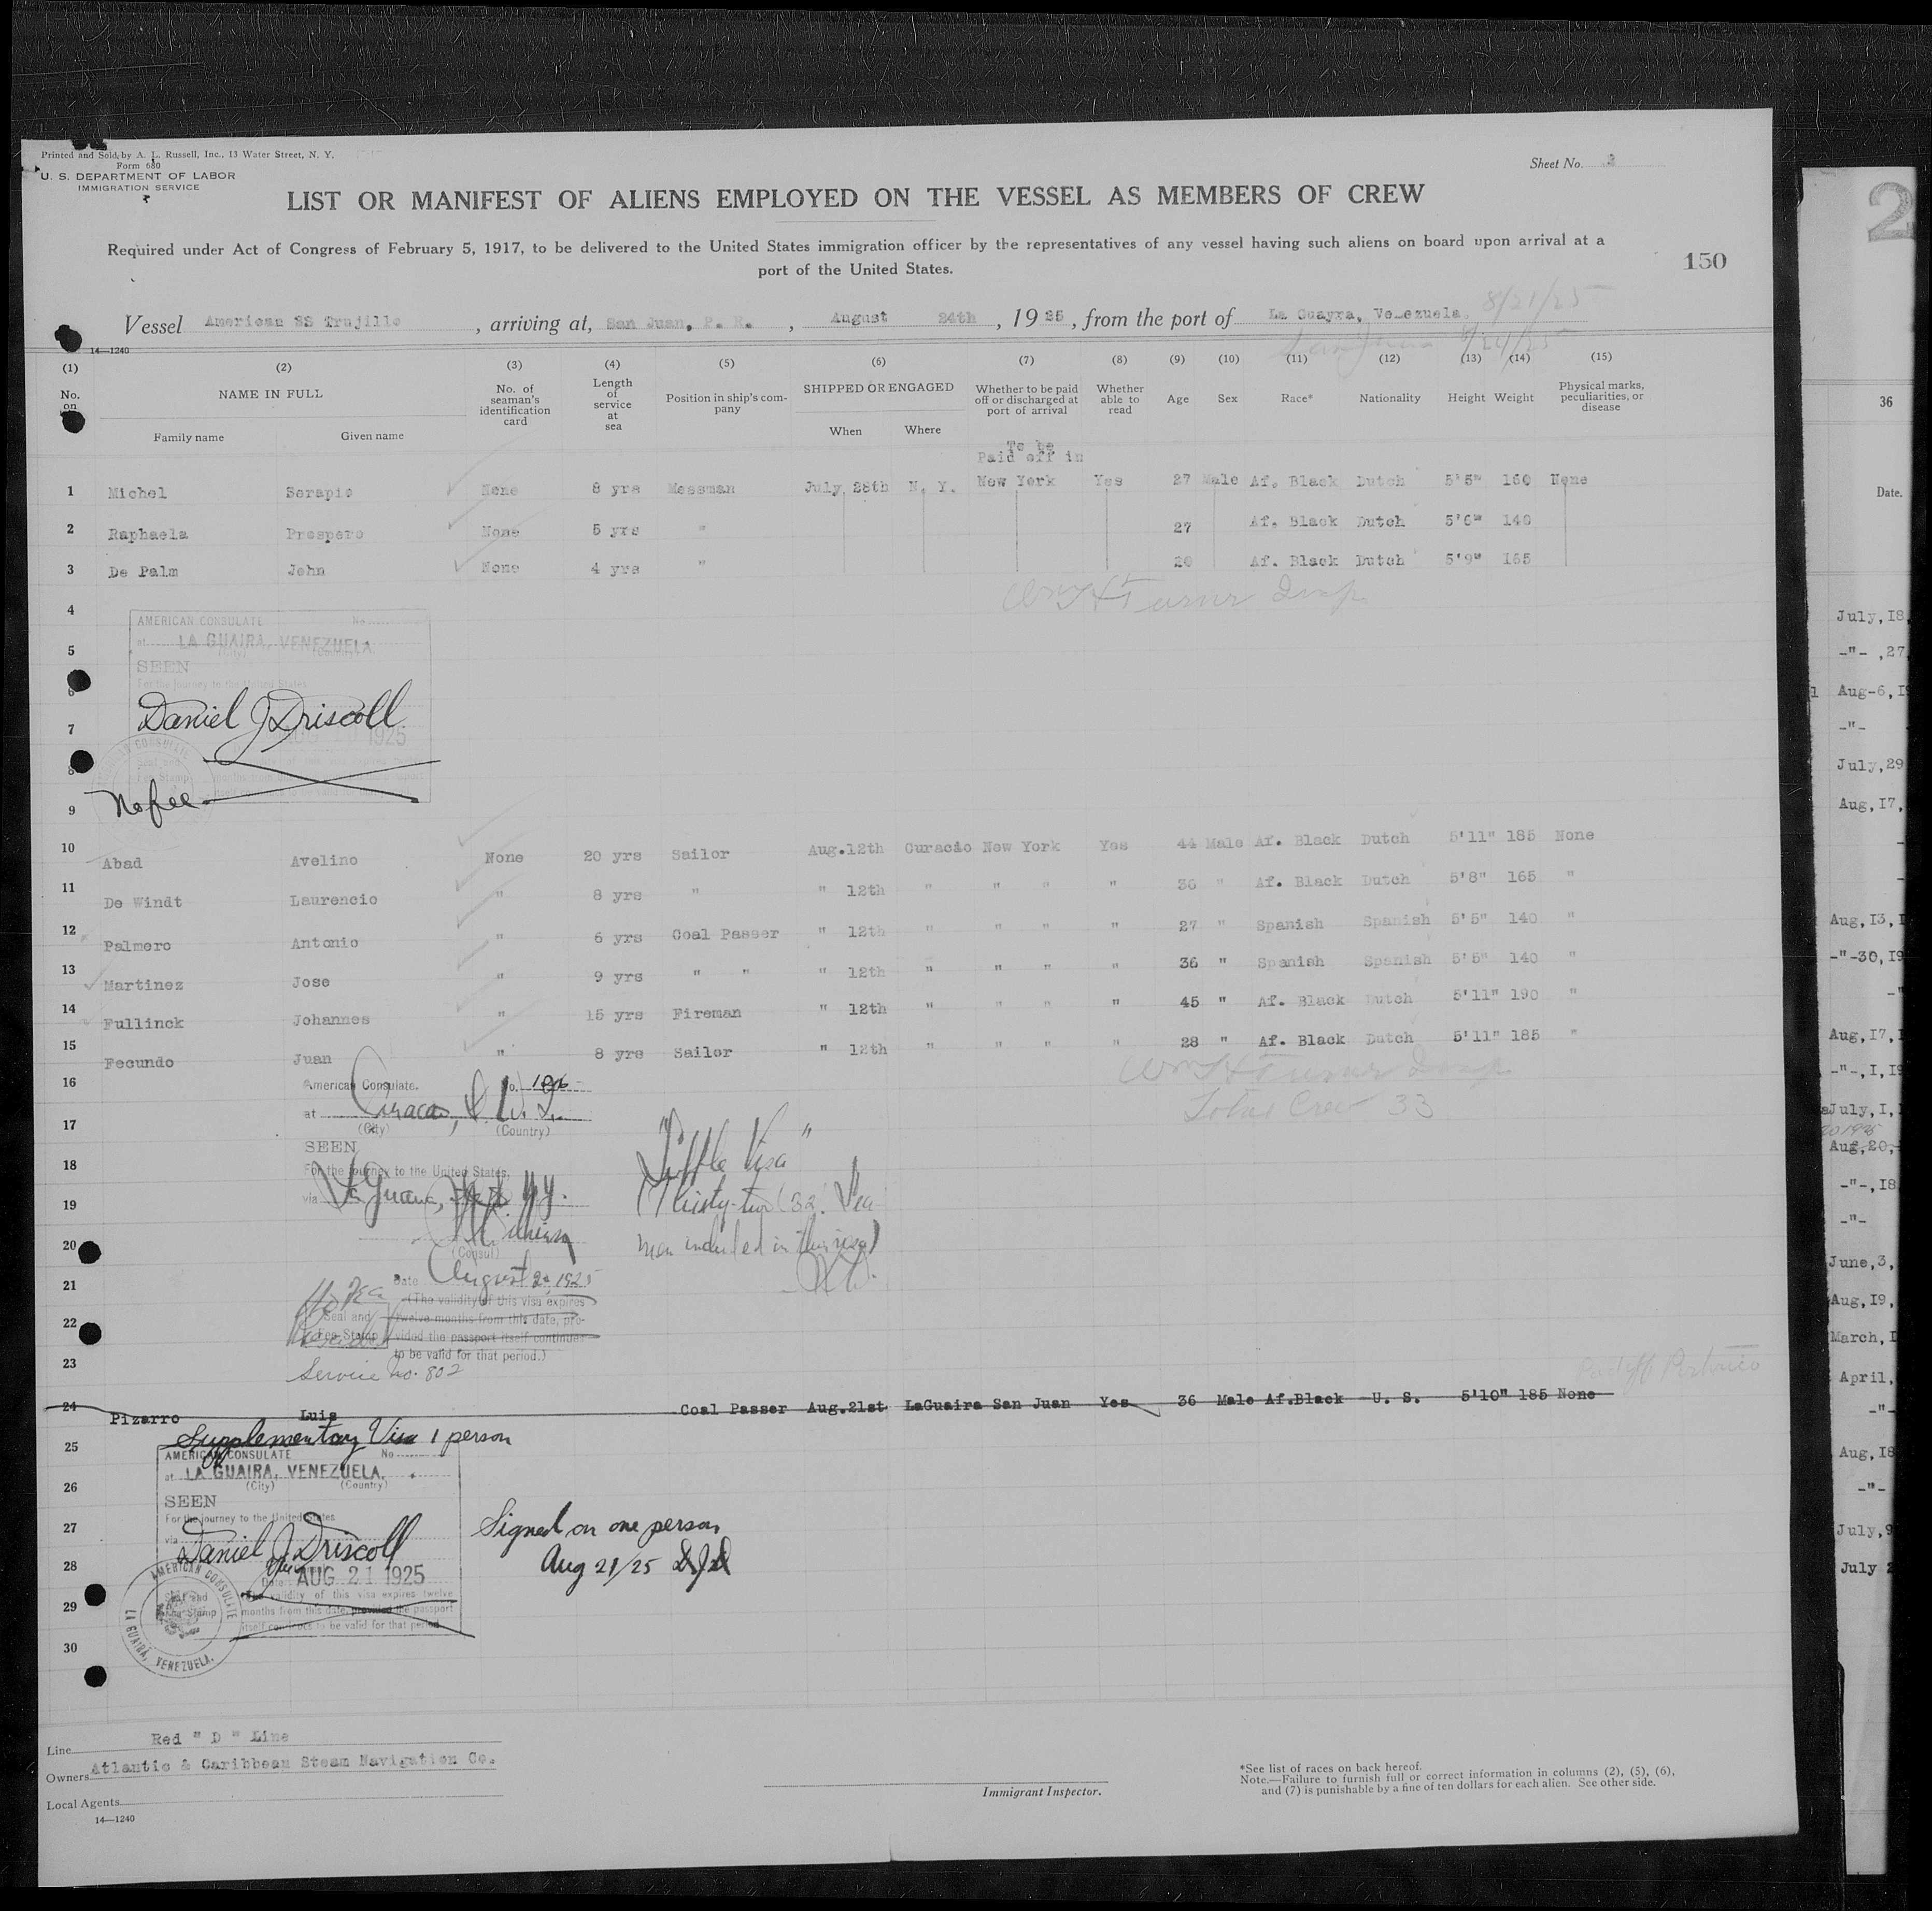 Printed and Sold by A. L. Russell, Inc., 13 Water Street, N. Y.
Form 680
U. S. DEPARTMENT OF LABOR
IMMIGRATION SERVICE
Sheet No.
LIST OR MANIFEST OF ALIENS EMPLOYED ON THE VESSEL AS MEMBERS OF CREW
Required under Act of Congress of February 5, 1917, to be delivered to the United States immigration officer by the representatives of any vessel having such aliens on board upon arrival at a
port of the United States.
150
8/21/25
Vessel American SS Trujillo, arriving at, San Juan, P. R., August 24th, 1925, from the port of La Guayra, Venezuela.
San Juan 8/24/25
14—1240
(1) (2) (3) (4) (5) (6) (7) (8) (9) (10) (11) (12) (13) (14) (15)
No. on NAME IN FULL No. of seaman's identification card Length of service at sea Position in ship's company SHIPPED OR ENGAGED Whether to be paid off or discharged at port of arrival Whether able to read Age Sex Race* Nationality Height Weight Physical marks, peculiarities, or disease
Family name Given name When Where
To be
Paid off in
1 Michel Serapio None 8 yrs Messman July 28th N. Y. New York Yes 27 Male Af. Black Dutch 5'5" 160 None
2 Raphaela Prospero None 5 yrs " 27 Af. Black Dutch 5'6" 140
3 De Palm John None 4 yrs " 20 Af. Black Dutch 5'9" 165
4
Wm H Turner Insp
AMERICAN CONSULATE No.
at LA GUAIRA, VENEZUELA
(City) (Country)
5
SEEN
For the journey to the United States
6
Daniel J Driscoll
7
1925
8
No fee
9
10 Abad Avelino None 20 yrs Sailor Aug.12th Curacao New York Yes 44 Male Af. Black Dutch 5'11" 185 None
11 De Windt Laurencio " 8 yrs " " 12th " " " " 36 " Af. Black Dutch 5'8" 165 "
12 Palmero Antonio " 6 yrs Coal Passer " 12th " " " " 27 " Spanish Spanish 5'5" 140 "
13 Martinez Jose " 9 yrs " " " 12th " " " " 36 " Spanish Spanish 5'5" 140 "
14 Fullinck Johannes " 15 yrs Fireman " 12th " " " " 45 " Af. Black Dutch 5'11" 190 "
15 Fecundo Juan " 8 yrs Sailor " 12th " " " " 28 " Af. Black Dutch 5'11" 185 "
Wm H Turner Insp
Total Crew 33
16
American Consulate. No.
at Curacao, D. W. I.
(City) (Country)
17
SEEN
18
For the journey to the United States,
via La Guaira,
19
20
(Consul)
Date August 1925
21
(The validity of this visa expires
22
Seal and twelve months from this date, pro-
Fee Stamp vided the passport itself continues
to be valid for that period.)
23
Service No. 802
Visa"
(Thirty-two (32) Sea
men included in this visa)
24 Pizarro Luis Coal Passer Aug.21st LaGuaira San Juan Yes 36 Male Af.Black U. S. 5'10" 185 None
Supplementary Visa 1 person
25
AMERICAN CONSULATE No
at LA GUAIRA, VENEZUELA.
(City) (Country)
26
SEEN
For the journey to the United States
27
via
Daniel J Driscoll
Signed on one person
Aug 21/25 DJD
28
Date AUG 21 1925
Seal and The validity of this visa expires twelve
29
Fee Stamp months from this date, provided the passport
itself continues to be valid for that period
30
AMERICAN CONSULATE LA GUAIRA, VENEZUELA.
Line Red " D " Line
Owners Atlantic & Caribbean Steam Navigation Co.
Local Agents
14—1240
Immigrant Inspector.
*See list of races on back hereof.
Note.—Failure to furnish full or correct information in columns (2), (5), (6),
and (7) is punishable by a fine of ten dollars for each alien. See other side.
2
36
Date.
July,18,
-"- ,27
Aug-6,
-"-
July,29
Aug,17,
Aug,13,
-"-30,19
Aug,17,
-"-,1,19
July,1,
Aug,20,
-"-,18
-"-
June,3,
Aug,19,
March,
April,
-"-
Aug,18
-"-
July,9
July